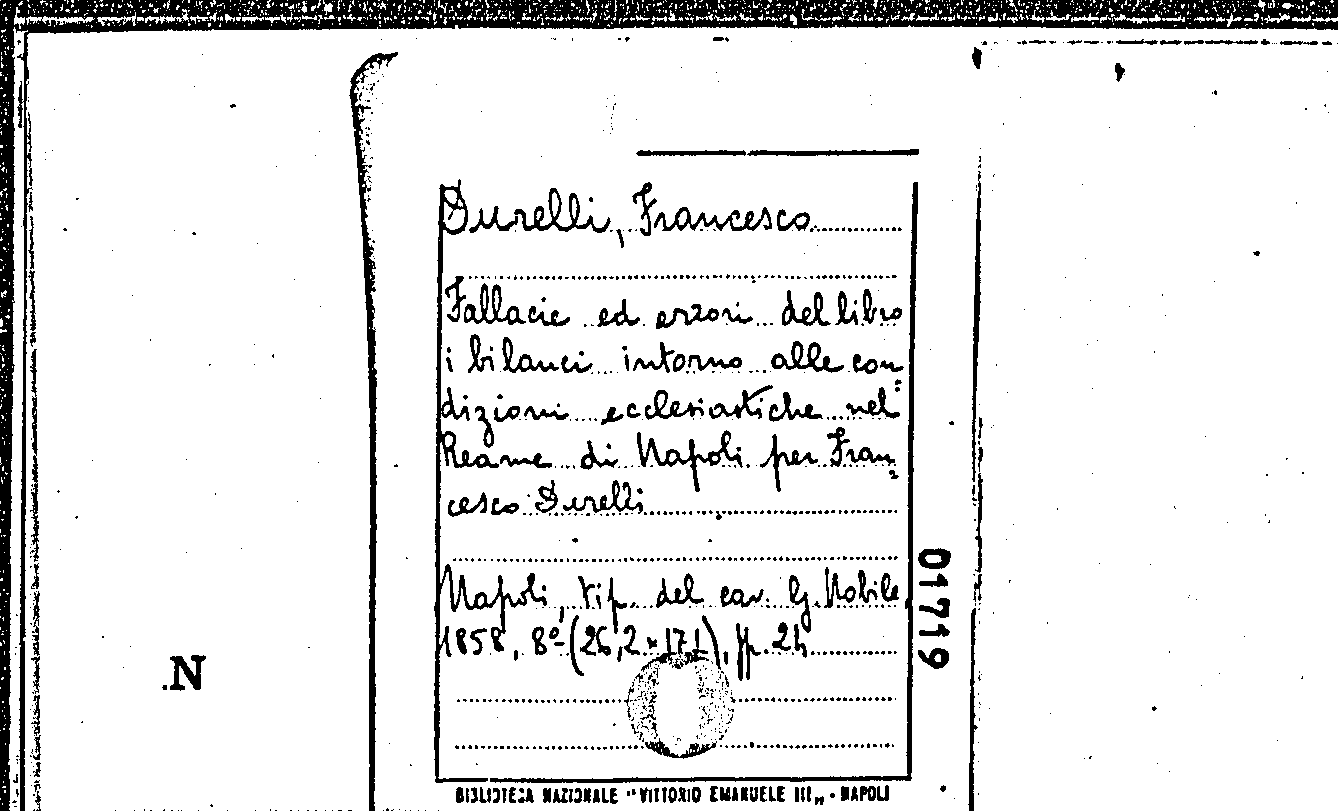 Durelli, Francesco
Fallacie ed errori del libro
i bilanci intorno alle con=
dizioni ecclesiastiche nel
Reame di Napoli per Fran=
cesco Durelli
Napoli, tip. del cav. G. Nobile
1858, 8º (26,2 x 17,1), pp. 24
01719
N
BIBLIOTECA NAZIONALE "VITTORIO EMANUELE III„ - NAPOLI